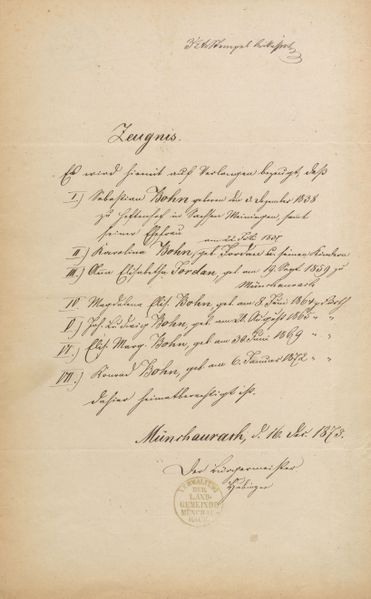 Zeugnis.
Es wird hiemit auf Verlangen bezeugt, daß
I.) Sebastian Bohn geboren den 3. Dezember 1838
zu in Sachsen Meiningen, samt
seiner Ehefrau
am 22. Feb. 1837
II.) Karolina Bohn, geb. Jordan u. seinen Kindern
III.) Ana Elisabetha Jordan, geb. am 19. Sept. 1859 zu
Münchaurach
IV. Magdalena Elis. Bohn, geb. am 8. Juni 1864
V.) Joh. Ludwig Bohn, geb. am August " "
VI.) Elis. Marg. Bohn, geb. am 30. Juni 1869 " "
VII.) Konrad Bohn, geb. am 6. Januar 1872 " "
dahier heimatberechtigt ist.
Münchaurach, d. 16. Dez. 1873.
Der Bürgermeister
VERWALTUNG
DER
LAND-
GEMEINDE
MÜNCHAU-
RACH